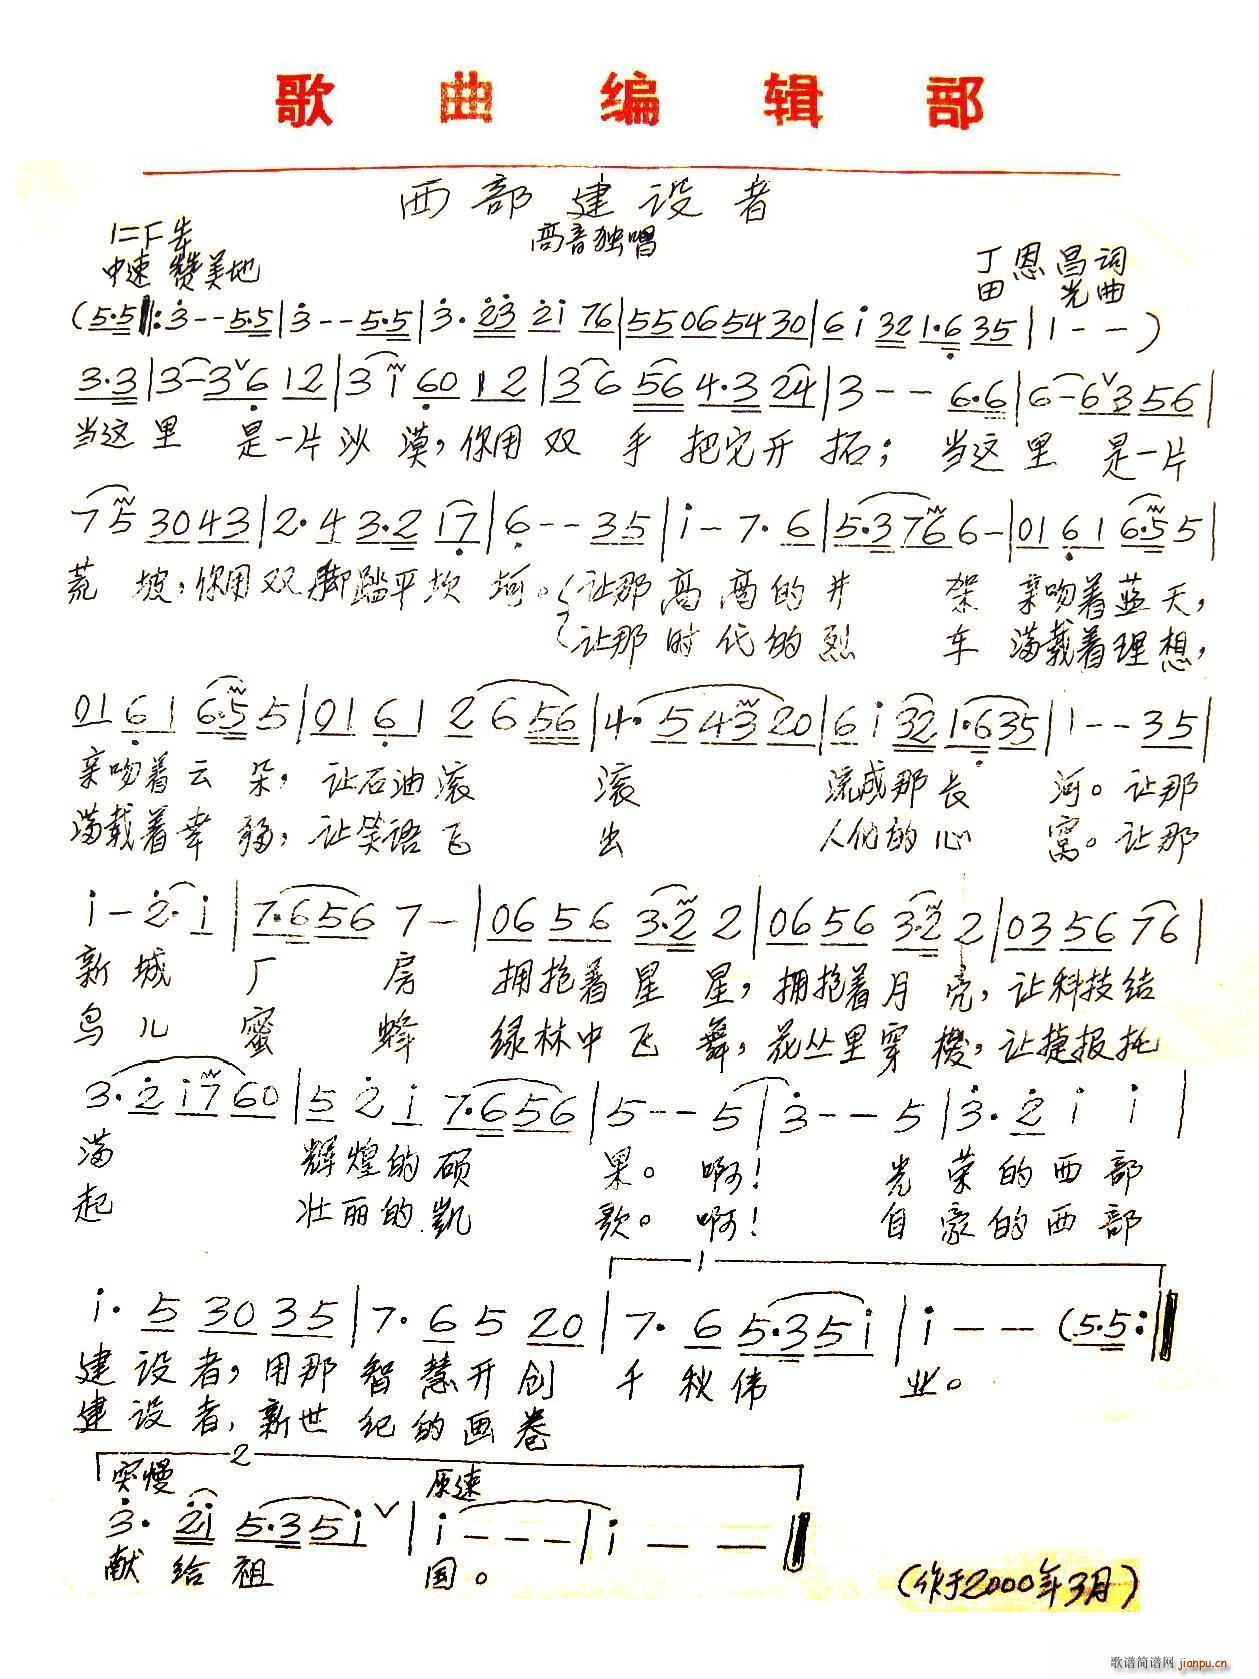 歌曲编辑部
西部建设者
高音独唱
1=F 4/4
中速 赞美地
丁恩昌词
田光曲
(5·5‖:3--5·5|3--5·5|3·23 2i 76|55065430|6i 321·635|1--)
3·3|3-3ˇ612|3i6012|36 564·324|3--6·6|6-6ˇ356|
当这里 是一片沙漠,你用双手把它开拓;当这里是一片
75 3043|2·43·217|6--35|i-7·6|5·3766-|01616·55|
荒坡,你用双脚踏平坎坷。让那高高的井架亲吻着蓝天,
让那时代的烈车满载着理想,
01616·55|0161 2656|4·54320|6i321·635|1--35|
亲吻着云朵,让石油滚滚流成那长河。让那
满载着幸福,让笑语飞出人们的心窝。让那
i-2·i|7·6567-|06563·22|06563·22|035676|
新城厂房拥抱着星星,拥抱着月亮,让科技结
鸟儿蜜蜂绿林中飞舞,花丛里穿梭,让捷报托
3·2i760|52i7·656|5--5|3--5|3·2ii|
满辉煌的硕果。啊!光荣的西部
起壮丽的凯歌。啊!自豪的西部
1
i·53035|7·6520|7·65·35i|i--(5·5:‖
建设者,用那智慧开创千秋伟业。
建设者,新世纪的画卷
2
突慢 原速
3·2i5·35iˇ|i---|i--‖
献给祖国。
(作于2000年3月)
歌谱简谱网 jianpu.cn